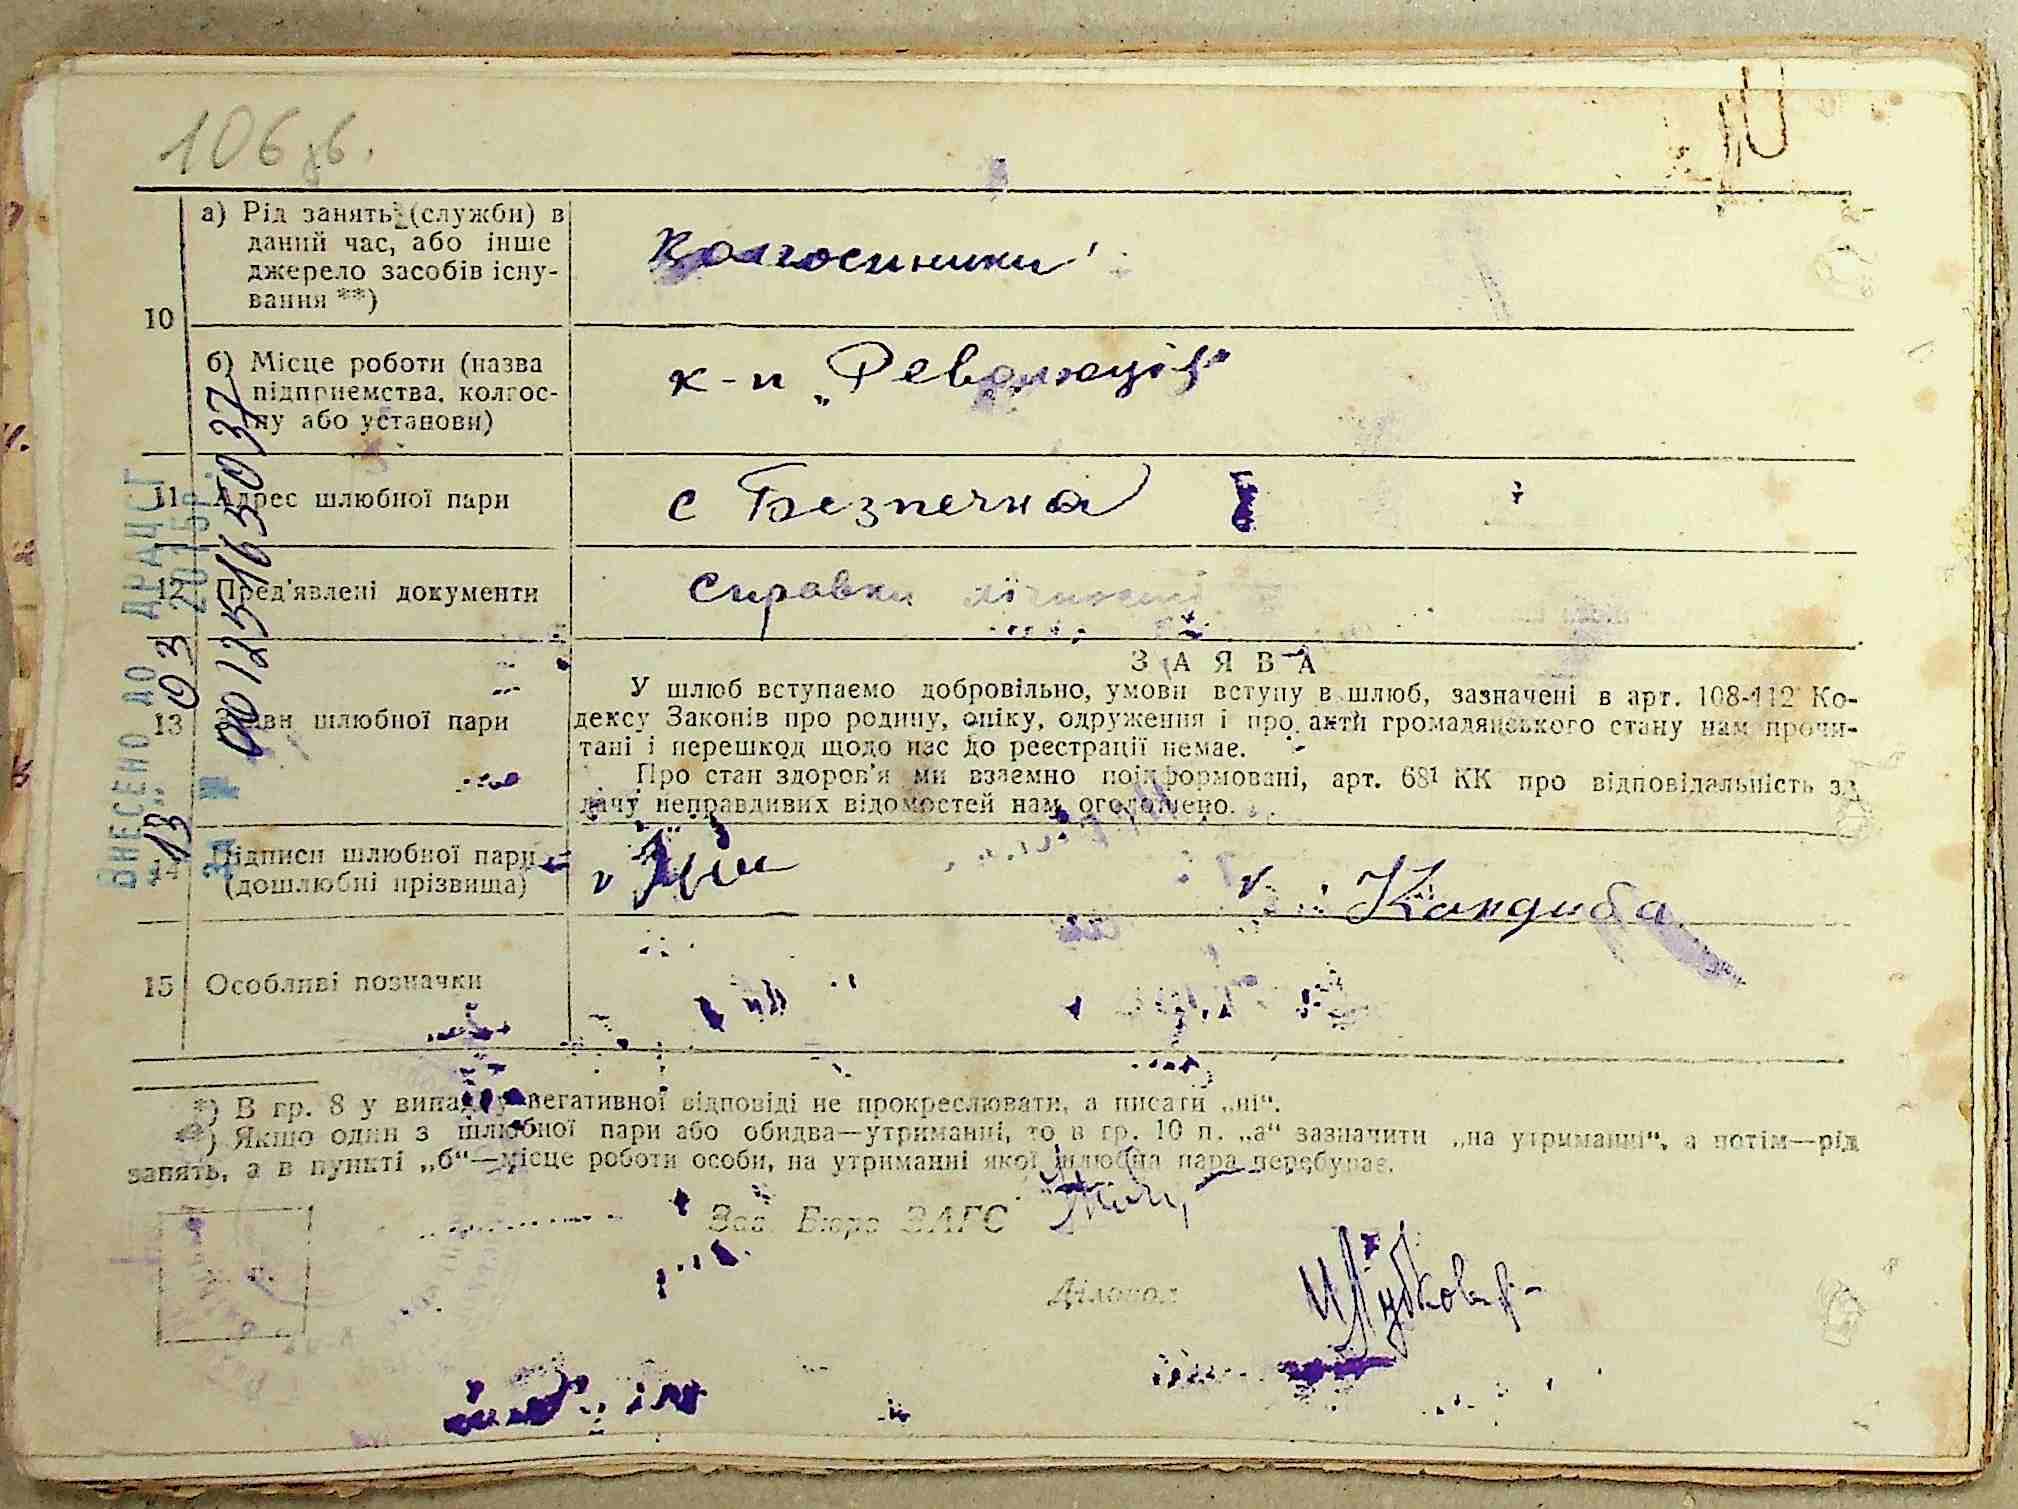 106 зв.
а) Рід занять (служби) в
даний час, або інше
джерело засобів існу-
вання **)
колгоспники
10
б) Місце роботи (назва
підприємства, колгос-
пу або установи)
к-п „Революція"
11 Адрес шлюбної пари
с Безпечна
12 Пред'явлені документи
справки
13 Заяви шлюбної пари
ЗАЯВА
У шлюб вступаємо добровільно, умови вступу в шлюб, зазначені в арт. 108-112 Ко-
дексу Законів про родину, опіку, одруження і про акти громадянського стану нам прочи-
тані і перешкод щодо нас до реєстрації немає.
Про стан здоров'я ми взаємно поінформовані, арт. 68¹ КК про відповідальність за
дачу неправдивих відомостей нам оголошено.
14 Підписи шлюбної пари
(дошлюбні прізвища)
Кандиба
15 Особливі позначки
*) В гр. 8 у випадку негативної відповіді не прокреслювати, а писати „ні".
**) Якщо один з шлюбної пари або обидва—утриманці, то в гр. 10 п. „а" зазначити „на утриманні", а потім—рід
занять, а в пункті „б"—місце роботи особи, на утриманні якої шлюбна пара перебуває.
Зав. Бюро ЗАГС
Діловод
ВНЕСЕНО ДО ДРАЦСГ
„13" 03 2015р.
ЗА № 00125165037